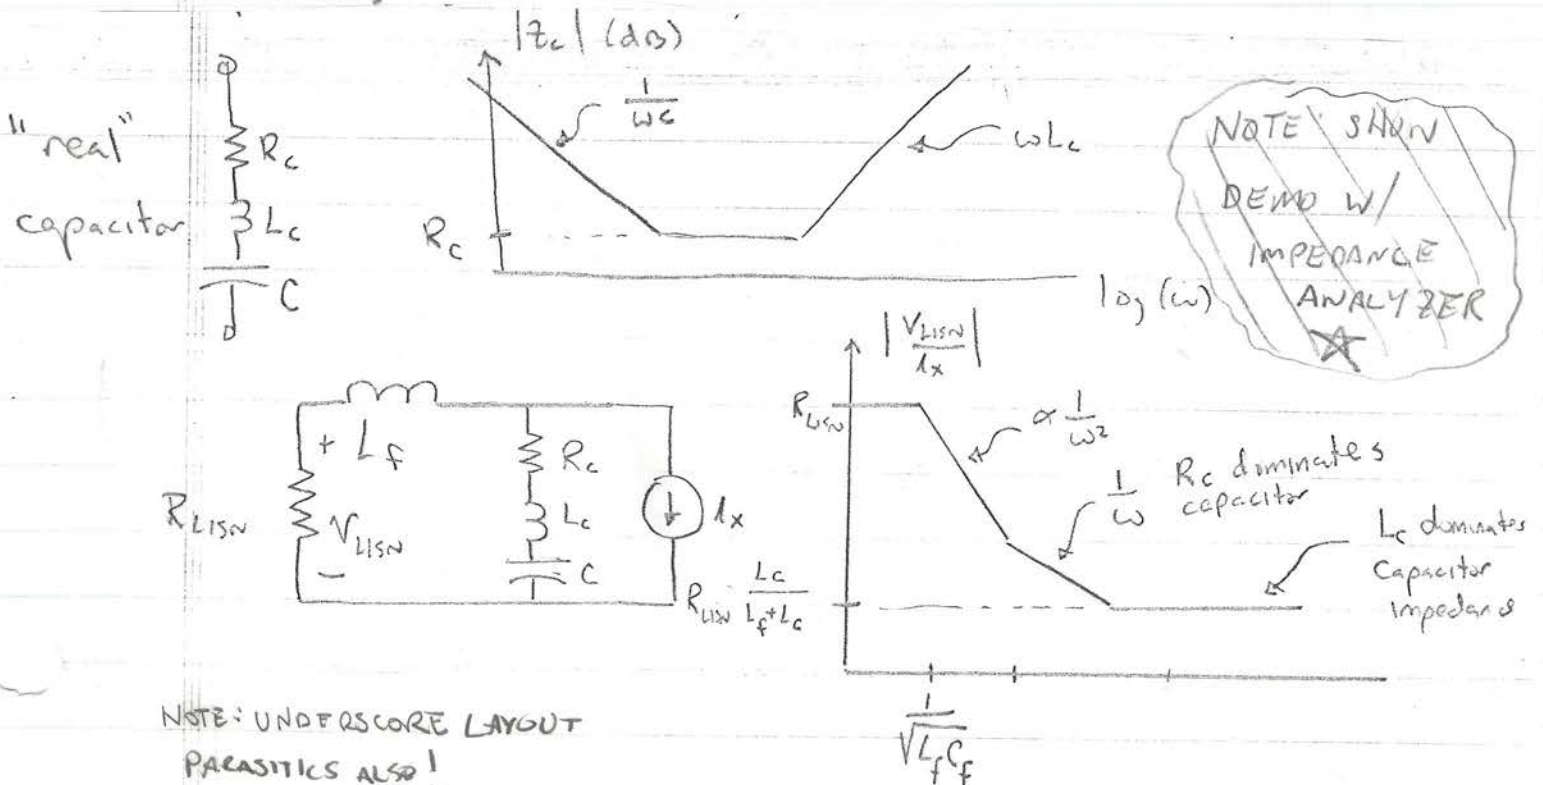 |Z_c| (dB)
"real"
capacitor
R_c
L_c
C
1/ωC
ωL_c
R_c
log(ω)
NOTE: SHOW
DEMO W/
IMPEDANCE
ANALYZER
R_LISN
+
V_LISN
−
L_f
R_c
L_c
C
i_x
|V_LISN/i_x|
R_LISN
∝ 1/ω²
1/ω R_c dominates
capacitor
L_c dominates
Capacitor
impedance
R_LISN · L_c/(L_f+L_c)
1/√(L_f C_f)
NOTE: UNDERSCORE LAYOUT
PARASITICS ALSO!